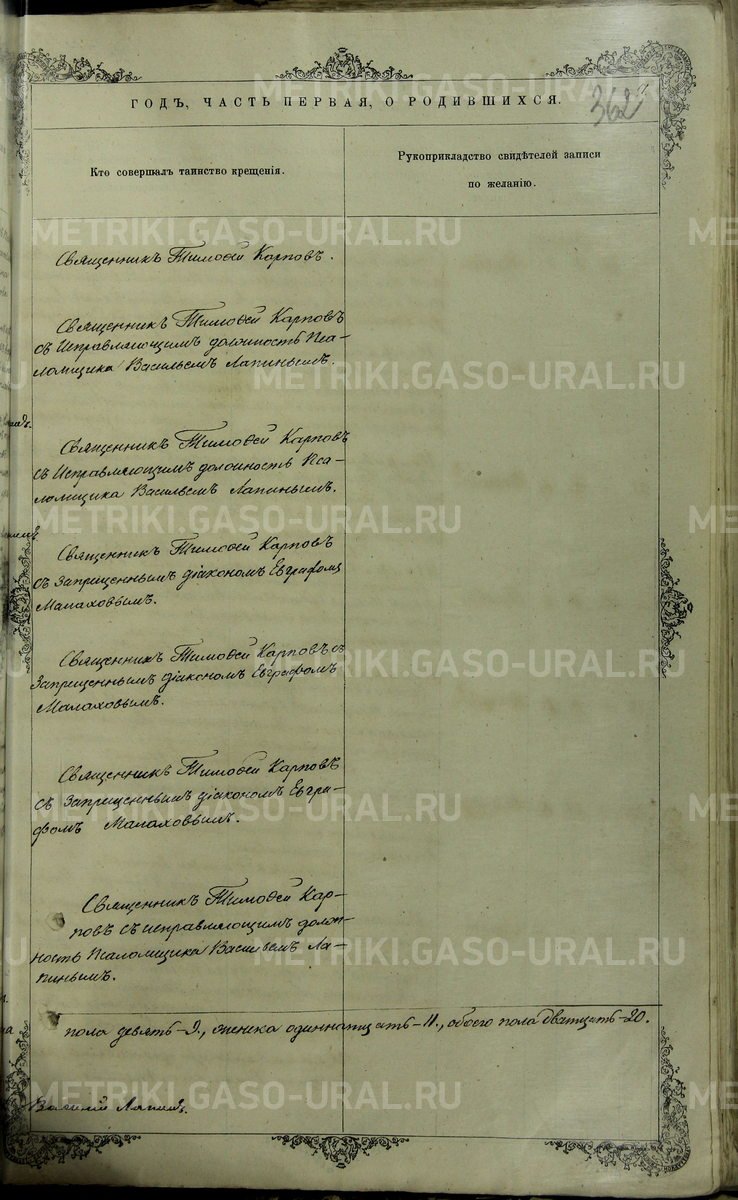 ГОДЪ, ЧАСТЬ ПЕРВАЯ, О РОДИВШИХСЯ.
362
Кто совершалъ таинство крещенія.
Рукоприкладство свидѣтелей записи
по желанію.
Священникъ Тимоѳей Карповъ.
Священникъ Тимоѳей Карповъ
съ Исправляющимъ должность Пса-
ломщика Васильемъ Лапинымъ.
Священникъ Тимоѳей Карповъ
съ Исправляющимъ должность Пса-
ломщика Васильемъ Лапинымъ.
Священникъ Тимоѳей Карповъ
съ Запрещеннымъ діакономъ Евграфомъ
Малаховымъ.
Священникъ Тимоѳей Карповъ съ
Запрещеннымъ діакономъ Евграфомъ
Малаховымъ.
Священникъ Тимоѳей Карповъ
съ Запрещеннымъ діакономъ Евгра-
фомъ Малаховымъ.
Священникъ Тимоѳей Кар-
повъ съ исправляющимъ долж-
ность Псаломщика Васильемъ Ла-
пинымъ.
пола девять-9., женска одиннатцать-11., обоего пола дватцать-20.
Василій Лапинъ.
METRIKI.GASO-URAL.RU